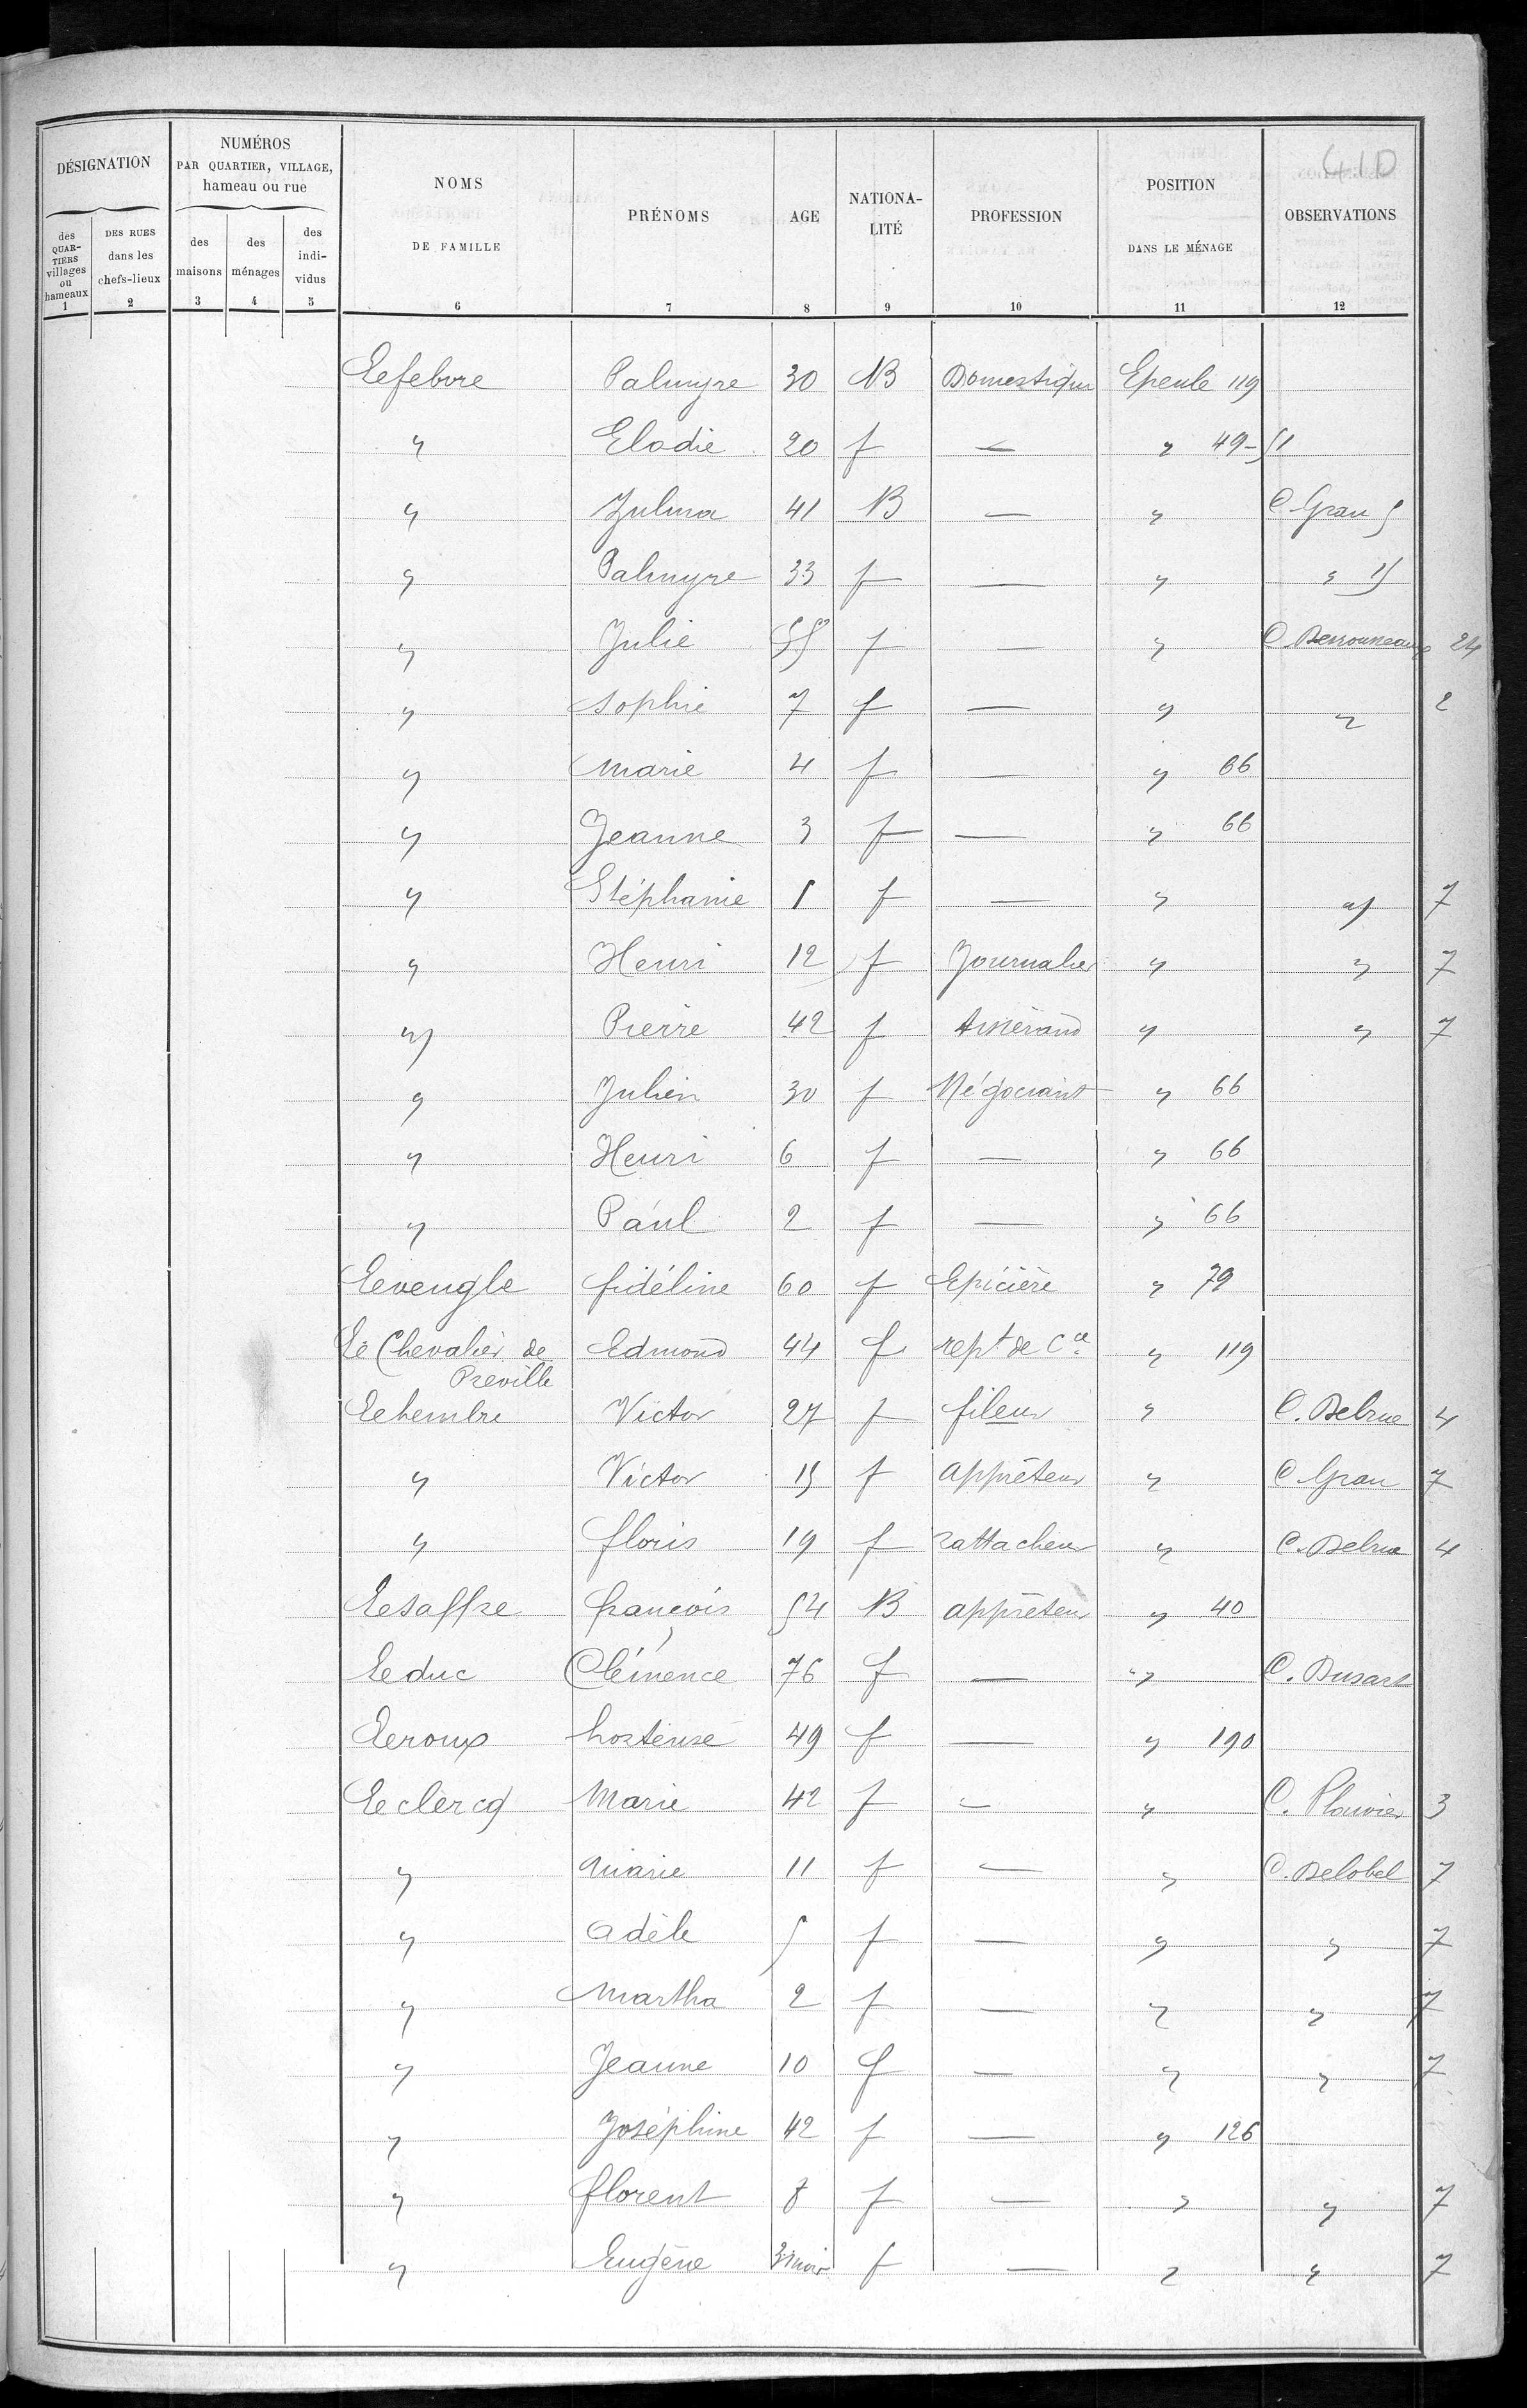 41D
DÉSIGNATION
NUMÉROS PAR QUARTIER, VILLAGE, hameau ou rue
NOMS DE FAMILLE
PRÉNOMS
AGE
NATIONA-LITÉ
PROFESSION
POSITION DANS LE MÉNAGE
OBSERVATIONS
des QUAR-TIERS villages ou hameaux
DES RUES dans les chefs-lieux
des maisons
des ménages
des indi-vidus
1 2 3 4 5 6 7 8 9 10 11 12
Lefebvre Palmyre 30 B Domestique Epeule 119
" Elodie 20 f — " 49-51
" Zulma 41 B — " C Grau 5
" Palmyre 33 f — " "
" Julie 55 f — " C. 24
" Sophie 7 f — " " 2
" Marie 4 f — " 66
" Jeanne 3 f — " 66
" Stéphanie 1 f — " " 7
" Henri 12 f Journalier " " 7
" Pierre 42 f " " 7
" Julien 30 f Négociant " 66
" Henri 6 f — " 66
" Paul 2 f — " 66
Leveugle fidéline 60 f Epicière " 79
Le Chevalier de Préville Edmond 44 f rept de Cce " 119
Lehembre Victor 27 f fileur " C. Debrue 4
" Victor 15 f apprêteur " C Grau 7
" floris 19 f rattacheur " C. Debrue 4
Lesaffre françois 54 B apprêteur " 40
Leduc Clémence 76 f — " C. Dusart
Leroux hortense 49 f — " 190
Leclercq Marie 42 f — " C. Plouvier 3
" Marie 11 f — " C. Delobel 7
" adèle 5 f — " " 7
" Martha 2 f — " " 7
" Jeanne 10 f — " " 7
" Joséphine 42 f — " 126
" florent 8 f — " " 7
" Eugène 3 mois f — " " 7